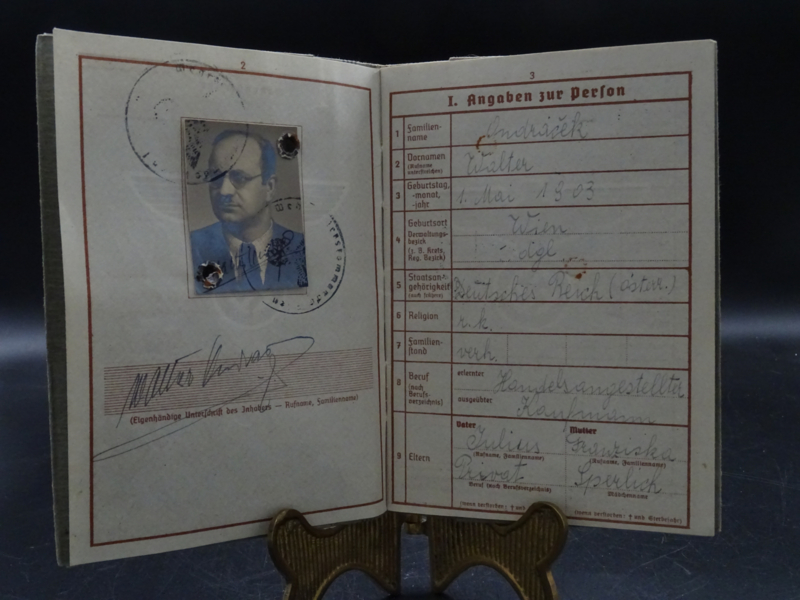 2
Walter
(Eigenhändige Unterschrift des Inhabers — Rufname, Familienname)
3
I. Angaben zur Person
1 Familien-
name
Ondráček
2 Vornamen
(Rufname
unterstreichen)
Walter
3 Geburtstag,
-monat,
-jahr
1. Mai 1903
4 Geburtsort
Verwaltungs-
bezirk
(z. B. Kreis,
Reg. Bezirk)
Wien
dgl
5 Staatsan-
gehörigkeit
(auch frühere)
Deutsches Reich (österr.)
6 Religion
r.k.
7 Familien-
stand
verh.
8 Beruf
(nach
Berufs-
verzeichnis)
erlernter
Handelsangestellter
ausgeübter
Kaufmann
9 Eltern
Vater Mutter
Julius Franziska
(Rufname, Familienname) (Rufname, Familienname)
Privat Sperlich
Beruf (nach Berufsverzeichnis) Mädchenname
(wenn verstorben: † und (wenn verstorben: † und Sterbejahr)